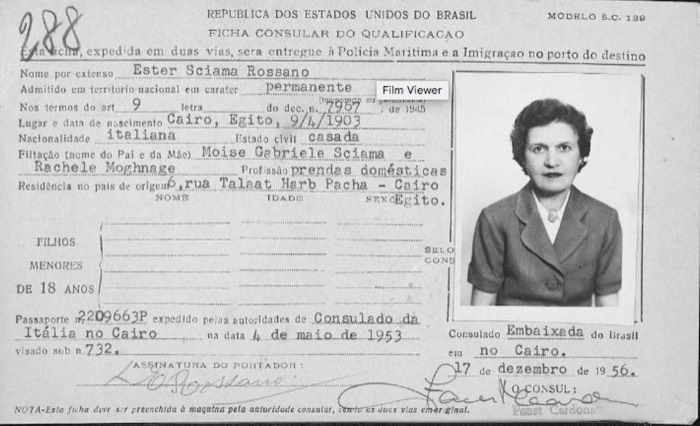 288
REPUBLICA DOS ESTADOS UNIDOS DO BRASIL
MODELO S.C. 139
FICHA CONSULAR DO QUALIFICAÇAO
Esta ficha, expedida em duas vias, sera entregue à Policia Maritima e a Imigraçao no porto do destino
Nome por extenso Ester Sciama Rossano
Admitido em territorio nacional em carater permanente
Film Viewer
Nos termos do art 9 letra do dec. n. 7967 , de 1945
Lugar e data de nascimento Cairo, Egito, 9/4/1903
Nacionalidade italiana Estado civil casada
Filiação (nome do Pai e da Mãe) Moise Gabriele Sciama e
Rachele Moghnage Profissão prendas domésticas
Residência no pais de origem 6,rua Talaat Harb Pacha - Cairo
NOME IDADE SEXO Egito.
FILHOS
MENORES
DE 18 ANOS
SELO
CONS
Passaporte n. 2209663P expedido pelas autoridades de Consulado da
Itália no Cairo na data 4 de maio de 1953
visado sob n. 732.
Consulado Embaixada do Brasil
em no Cairo.
17 de dezembro de 1956.
ASSINATURA DO PORTADOR:
Rossano
O CONSUL:
NOTA-Esta ficha deve ser preenchida à maquina pela autoridade consular, as duas vias em original.